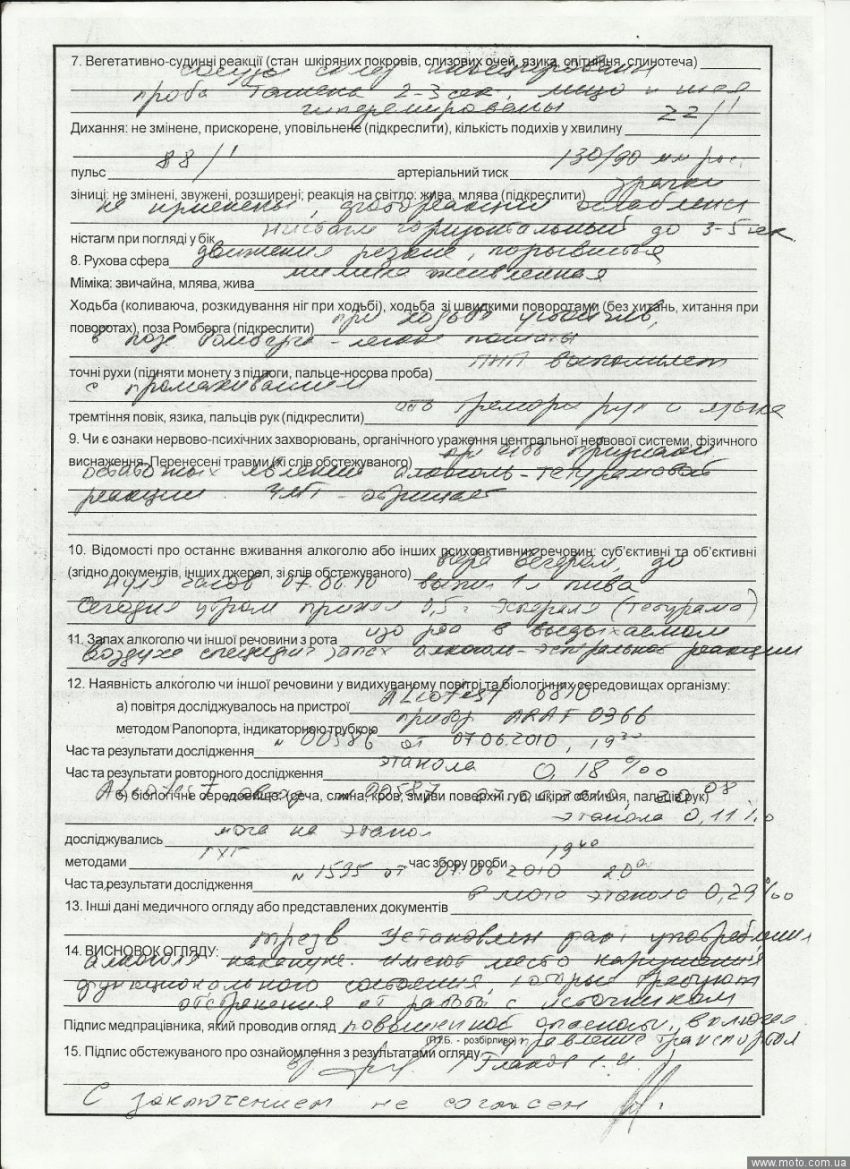 7. Вегетативно-судинні реакції (стан шкіряних покровів, слизових очей, язика, спітніння, слинотеча)
сосуды склер инъецированы
проба Ташена 2-3 сек, лицо и шея
гиперемированы
Дихання: не змінене, прискорене, уповільнене (підкреслити), кількість подихів у хвилину 22/1'
пульс 88/1' артеріальний тиск 130/90 мм рт.
зіниці: не змінені, звужені, розширені; реакція на світло: жива, млява (підкреслити) зрачки
не изменены, фотореакции ослаблены
ністагм при погляді у бік нистагм горизонтальный до 3-5 сек
8. Рухова сфера движения резкие, порывистые
Міміка: звичайна, млява, жива мимика оживленная
Ходьба (коливаюча, розкидування ніг при ходьбі), ходьба зі швидкими поворотами (без хитань, хитання при
поворотах), поза Ромберга (підкреслити) при ходьбе
в позе Ромберга - легкие
точні рухи (підняти монету з підлоги, пальце-носова проба) ПНП выполняет
с промахиванием
тремтіння повік, язика, пальців рук (підкреслити) тремора рук и языка
9. Чи є ознаки нервово-психічних захворювань, органічного ураження центральної нервової системи, фізичного
виснаження. Перенесені травми (зі слів обстежуваного) признаки
явлений алкоголь-тетурамовой
реакции. ЧМТ - отрицает
10. Відомості про останнє вживання алкоголю або інших психоактивних речовин: суб'єктивні та об'єктивні
(згідно документів, інших джерел, зі слів обстежуваного) вчера вечером, до
нуля часов 07.06.10 выпил 1л пива
Сегодня утром принял 0,5 г Эспераля (Тетурама)
11. Запах алкоголю чи іншої речовини з рота изо рта в выдыхаемом
воздухе специфич запах алкоголь-эсперальной реакции
12. Наявність алкоголю чи іншої речовини у видихуваному повітрі та біологічних середовищах організму:
а) повітря досліджувалось на пристрої ALcotest 6810
методом Рапопорта, індикаторною трубкою прибор ARAF 0366
Час та результати дослідження № 00586 от 07.06.2010, 19
Час та результати повторного дослідження этанола 0,18 ‰
б) біологічне середовище: (сеча, слина, кров, змиви поверхні губ, шкіри обличчя, пальців рук)
ALcotest № 00587 07.06.2010, 20 08
этанола 0,11 ‰
досліджувались моча на этанол
методами ГЖХ час збору проби 19 40
Час та результати дослідження № 1595 от 07.06.2010 20
в моче этанола 0,29 ‰
13. Інші дані медичного огляду або представлених документів
14. ВИСНОВОК ОГЛЯДУ: трезв. Установлен факт употребления
алкоголя накануне. Имеют место нарушения
функционального состояния, которые требуют
отстранения от работы с источником
Підпис медпрацівника, який проводив огляд повышенной опасности, включая
(П.І.Б. - розбірливо) управление транспортом
15. Підпис обстежуваного про ознайомлення з результатами огляду
С заключением не согласен
www.moto.com.ua